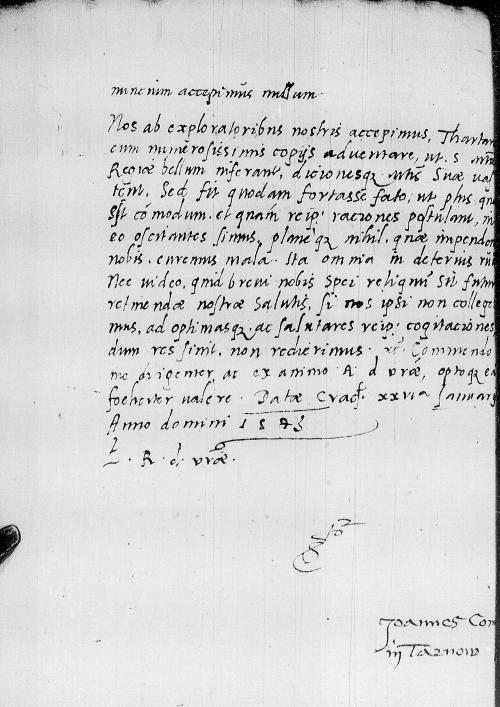 nuncium accepimus nullum.
Nos ab exploratoribus nostris accepimus, Thartaro
cum numerosissimis copijs adventare, ut. S.
Regiae bellum inferant, dicionesq; Suae vas
tent. Sed fit quodam fortasse fato, ut plus, qua
Sit comodum. et quam reip: raciones postulant, in
eo oscitantes simus, planeq; nihil, quae impendent
nobis, curemus mala. Ita omnia in deterius ruu
Nec video, quid brevi nobis spei reliquu sit futur
retinendae nostrae Salutis, si nos ipsi non college
mus, ad optimasq; ac salutares reip: cogitaciones
dum res sinit, non redierimus. Commendo
me diligenter, ac ex animo R. d. vrae, optoq; ea
foeliciter valere. Datae Crac. xxvia Januarij
Anno domini 1543
E. R. d. vrae.
Joannes Com
in Tarnow